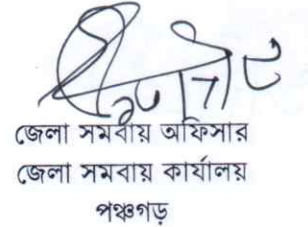 জেলা সমবায় অফিসার
জেলা সমবায় কার্যালয়
পঞ্চগড়